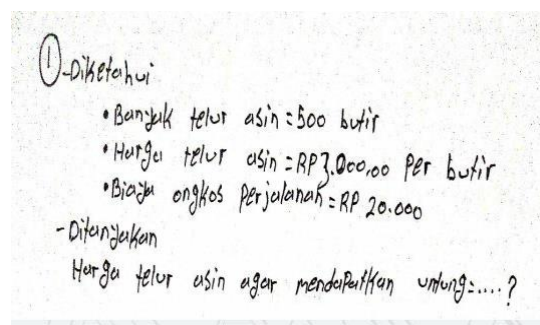 ① -Diketahui
• Banyak telur asin = 500 butir
• Harga telur asin = RP 3.000,00 Per butir
• Biaya ongkos Perjalanan = RP 20.000
- Ditanyakan
Harga telur asin agar mendaPatkan untung = .... ?